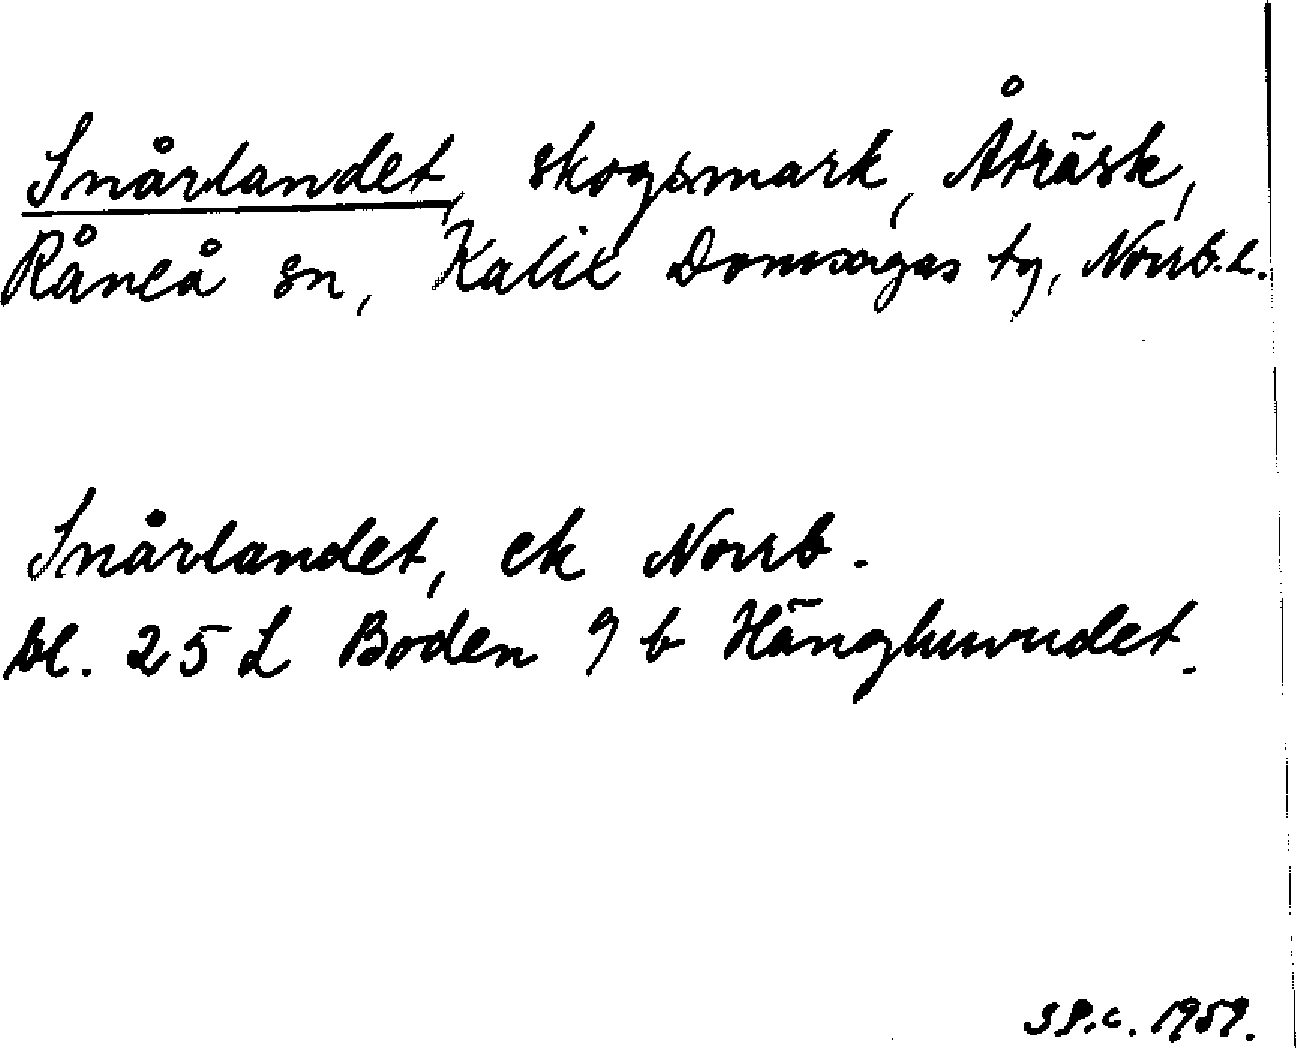 Snårlandet, skogsmark, Åträsk,
Råneå sn, Kalix Domsagas tg, Norrb. L.
Snårlandet, ek Norrb.
bl. 25 L Boden 9 b Hänghuvudet.
SP.c. 1959.